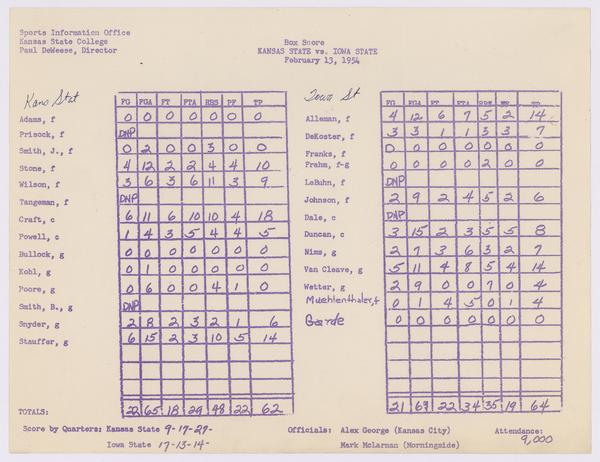 Sports Information Office
Kansas State College
Paul DeWeese, Director
Box Score
KANSAS STATE vs. IOWA STATE
February 13, 1954
Kans Stat
FG FGA FT FTA REB PF TP
Adams, f 0 0 0 0 0 0 0
Prisock, f DNP
Smith, J., f 0 2 0 0 3 0 0
Stone, f 4 12 2 2 4 4 10
Wilson, f 3 6 3 6 11 3 9
Tangeman, f DNP
Craft, c 6 11 6 10 10 4 18
Powell, c 1 4 3 5 4 4 5
Bullock, g 0 0 0 0 0 0 0
Kohl, g 0 1 0 0 0 0 0
Poore, g 0 6 0 0 4 1 0
Smith, B., g DNP
Snyder, g 2 8 2 3 2 1 6
Stauffer, g 6 15 2 3 10 5 14
TOTALS: 22 65 18 29 48 22 62
Iowa St
FG FGA FT FTA REB PF TP
Alleman, f 4 12 6 7 5 2 14
DeKoster, f 3 3 1 1 3 3 7
Franks, f 0 0 0 0 0 0 0
Prahm, f-g 0 0 0 0 2 0 0
LeBuhn, f DNP
Johnson, f 2 9 2 4 5 2 6
Dale, c DNP
Duncan, c 3 15 2 3 5 5 8
Nims, g 2 7 3 6 3 2 7
Van Cleave, g 5 11 4 8 5 4 14
Wetter, g 2 9 0 0 7 0 4
Muehlenthaler, f 0 1 4 5 0 1 4
Garde 0 0 0 0 0 0 0
21 63 22 34 35 19 64
Score by Quarters: Kansas State 9-17-27-
Iowa State 17-13-14-
Officials: Alex George (Kansas City)
Mark McLarnan (Morningside)
Attendance:
9,000